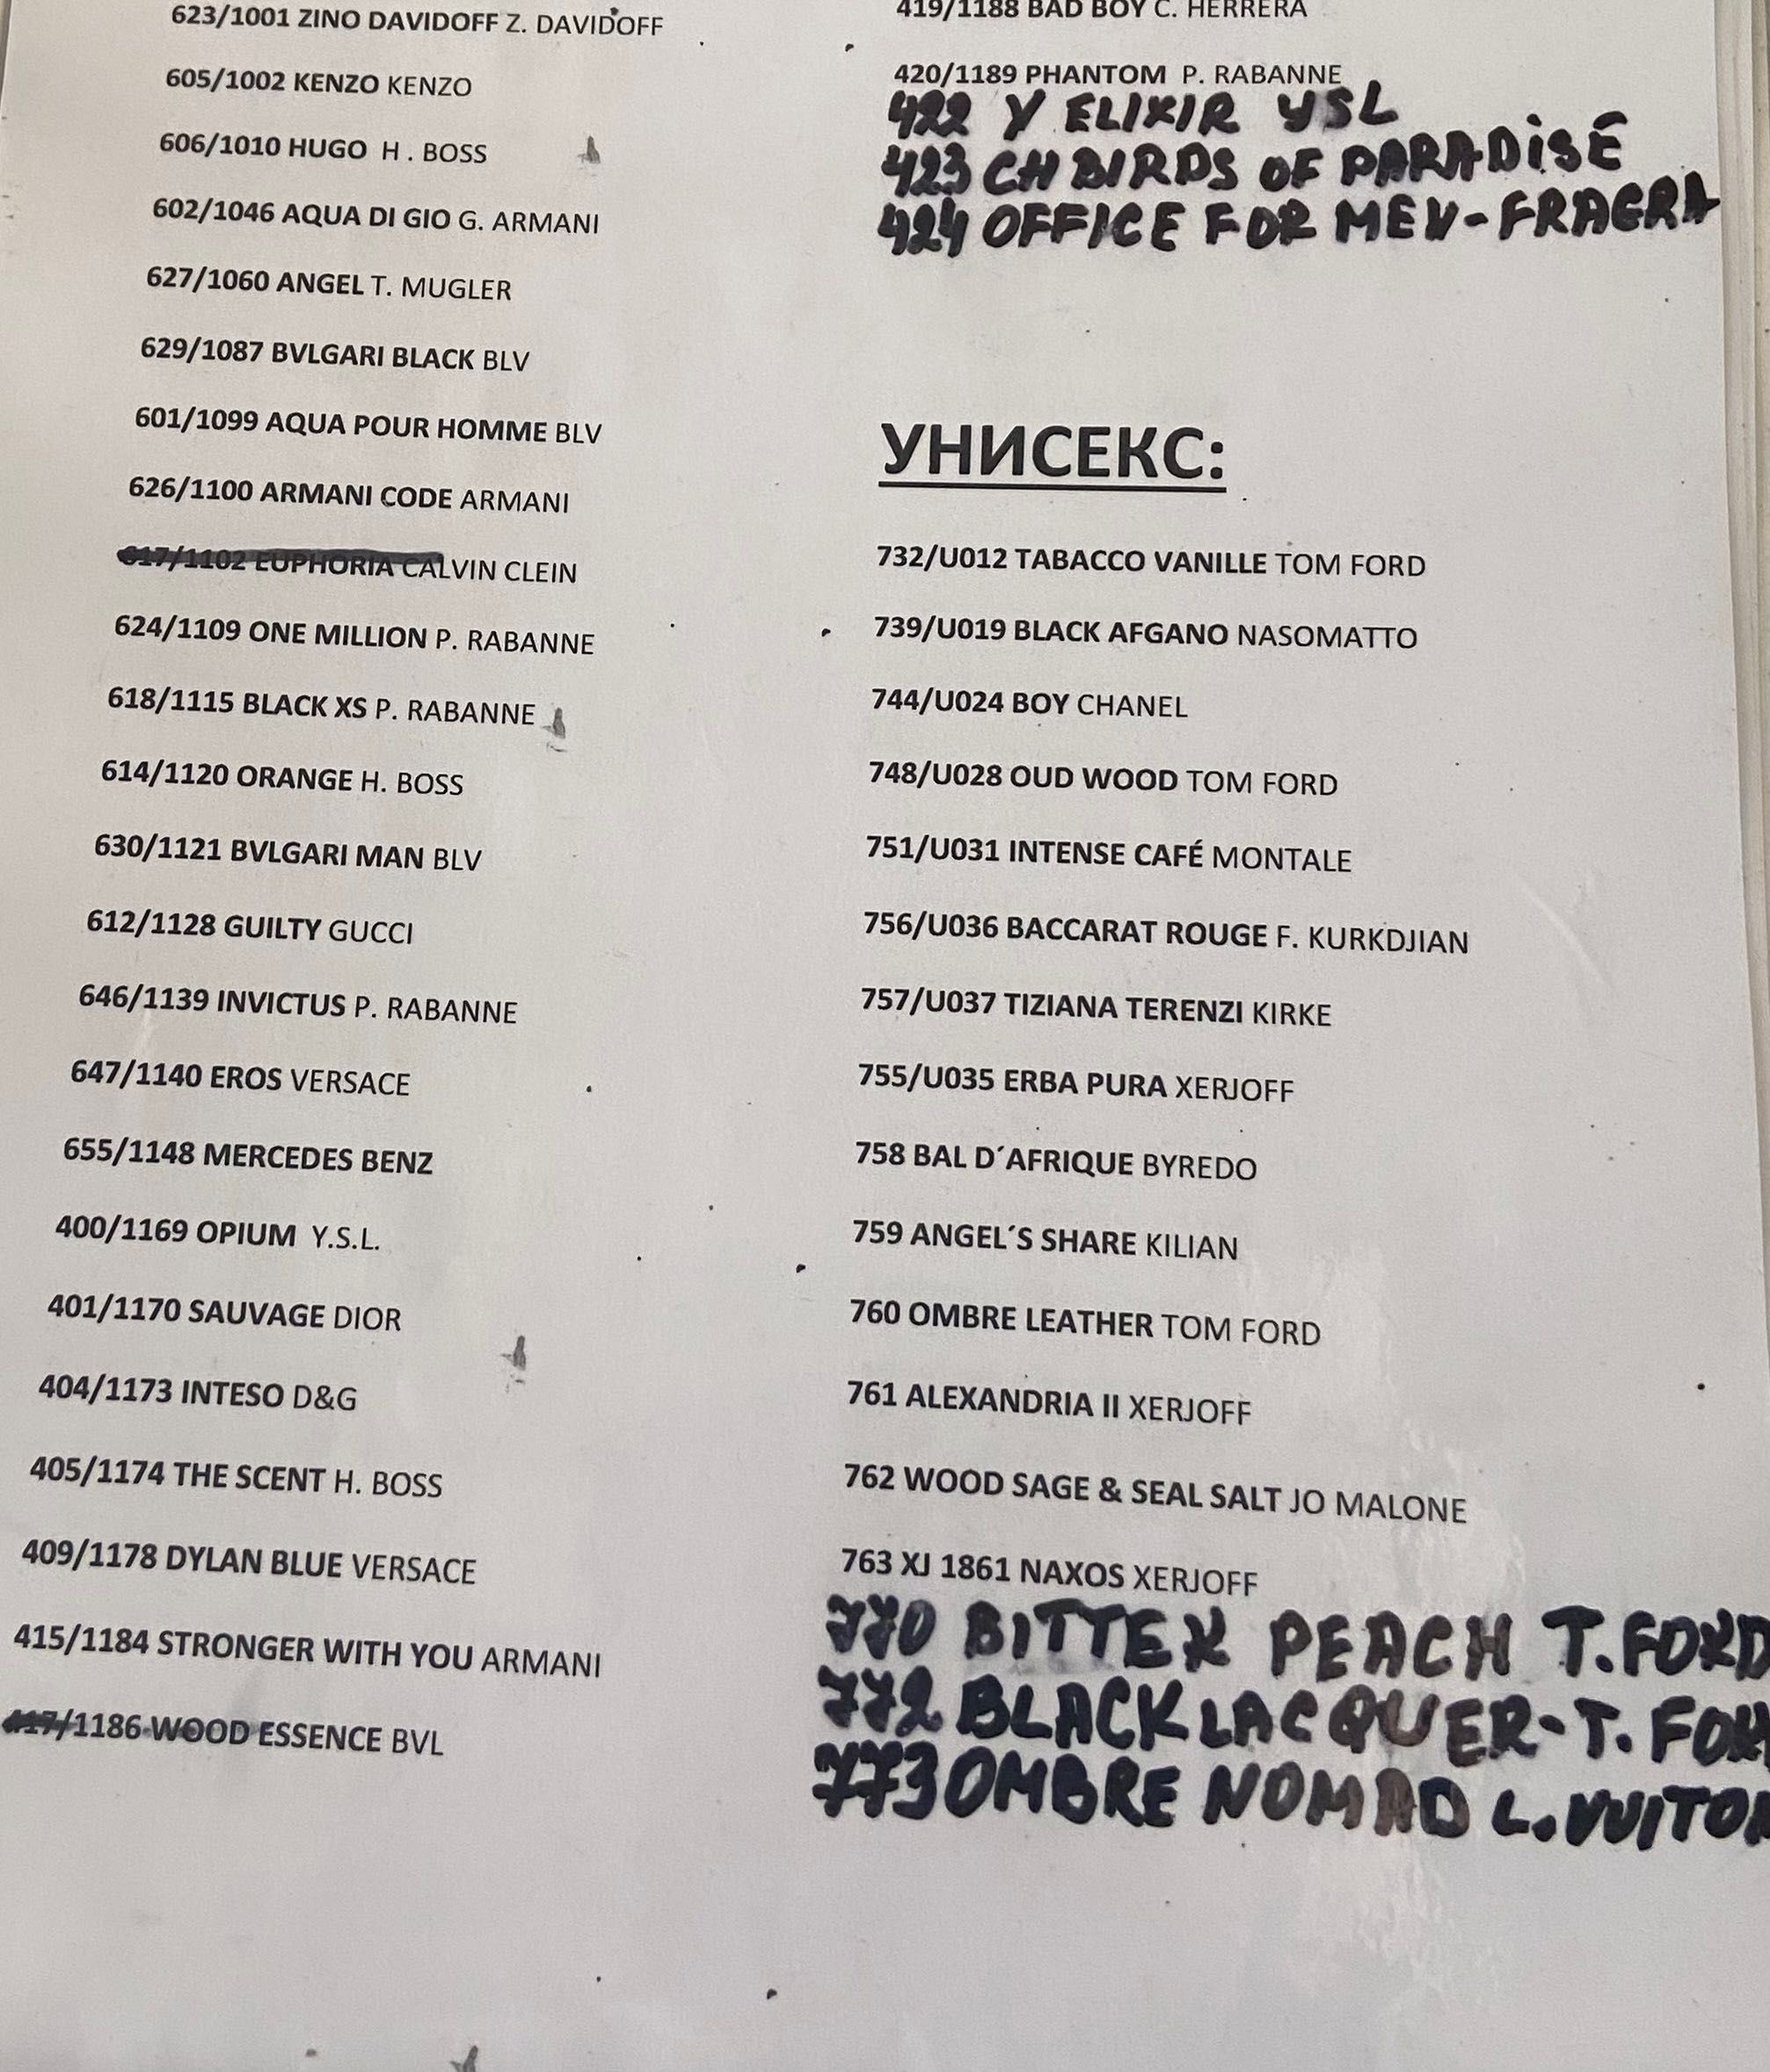 623/1001 ZINO DAVIDOFF Z. DAVIDOFF
605/1002 KENZO KENZO
606/1010 HUGO H . BOSS
602/1046 AQUA DI GIO G. ARMANI
627/1060 ANGEL T. MUGLER
629/1087 BVLGARI BLACK BLV
601/1099 AQUA POUR HOMME BLV
626/1100 ARMANI CODE ARMANI
617/1102 EUPHORIA CALVIN CLEIN
624/1109 ONE MILLION P. RABANNE
618/1115 BLACK XS P. RABANNE
614/1120 ORANGE H. BOSS
630/1121 BVLGARI MAN BLV
612/1128 GUILTY GUCCI
646/1139 INVICTUS P. RABANNE
647/1140 EROS VERSACE
655/1148 MERCEDES BENZ
400/1169 OPIUM Y.S.L.
401/1170 SAUVAGE DIOR
404/1173 INTESO D&G
405/1174 THE SCENT H. BOSS
409/1178 DYLAN BLUE VERSACE
415/1184 STRONGER WITH YOU ARMANI
417/1186 WOOD ESSENCE BVL
419/1188 BAD BOY C. HERRERA
420/1189 PHANTOM P. RABANNE
422 Y ELIXIR YSL
423 CH BIRDS OF PARADISE
424 OFFICE FOR MEN-FRAGRA
УНИСЕКС:
732/U012 TABACCO VANILLE TOM FORD
739/U019 BLACK AFGANO NASOMATTO
744/U024 BOY CHANEL
748/U028 OUD WOOD TOM FORD
751/U031 INTENSE CAFÉ MONTALE
756/U036 BACCARAT ROUGE F. KURKDJIAN
757/U037 TIZIANA TERENZI KIRKE
755/U035 ERBA PURA XERJOFF
758 BAL D´AFRIQUE BYREDO
759 ANGEL´S SHARE KILIAN
760 OMBRE LEATHER TOM FORD
761 ALEXANDRIA II XERJOFF
762 WOOD SAGE & SEAL SALT JO MALONE
763 XJ 1861 NAXOS XERJOFF
770 BITTER PEACH T.FORD
772 BLACK LACQUER-T. FOR
773 OMBRE NOMAD L.VUITON